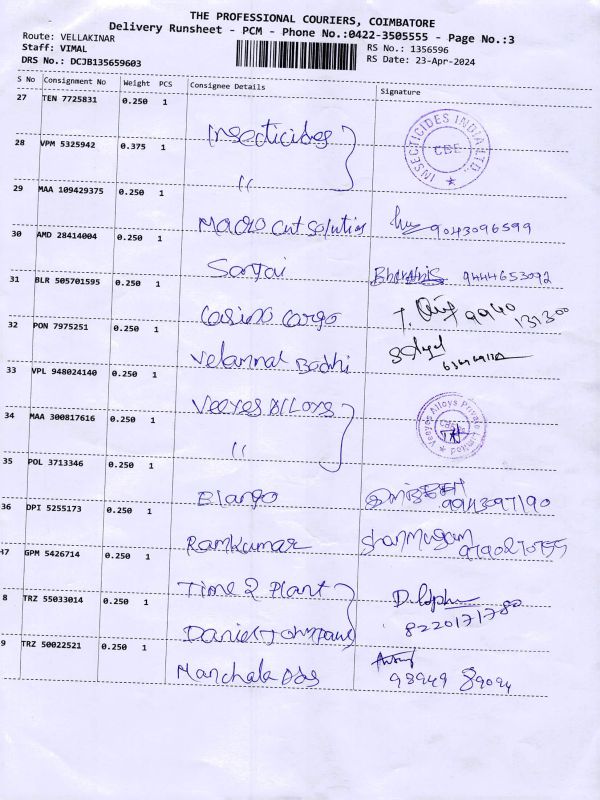 THE PROFESSIONAL COURIERS, COIMBATORE
Delivery Runsheet - PCM - Phone No.:0422-3505555 - Page No.:3
Route: VELLAKINAR
RS No.: 1356596
Staff: VIMAL
RS Date: 23-Apr-2024
DRS No.: DCJB135659603
S No Consignment No Weight PCS Consignee Details Signature
27 TEN 7725831 0.250 1
Insecticides
INSECTICIDES INDIA LTD
CBE
28 VPM 5325942 0.375 1
"
29 MAA 109429375 0.250 1
Macro cnt solution 9043096599
30 AMD 28414004 0.250 1
Sanjai 9444653092
31 BLR 505701595 0.250 1
Casino Cargo 9940 131300
32 PON 7975251 0.250 1
Velammal Bodhi
33 VPL 948024140 0.250 1
Veeyes Alloys
Veeyes Alloys Private Limited
34 MAA 300817616 0.250 1
"
35 POL 3713346 0.250 1
Elango 9943097190
36 DPI 5255173 0.250 1
Ramkumar Shanmugam 9790270755
37 GPM 5426714 0.250 1
Time 2 Plant
8 TRZ 55033014 0.250 1
Daniel 8220171780
9 TRZ 50022521 0.250 1
Manchala Ads 98949 89094